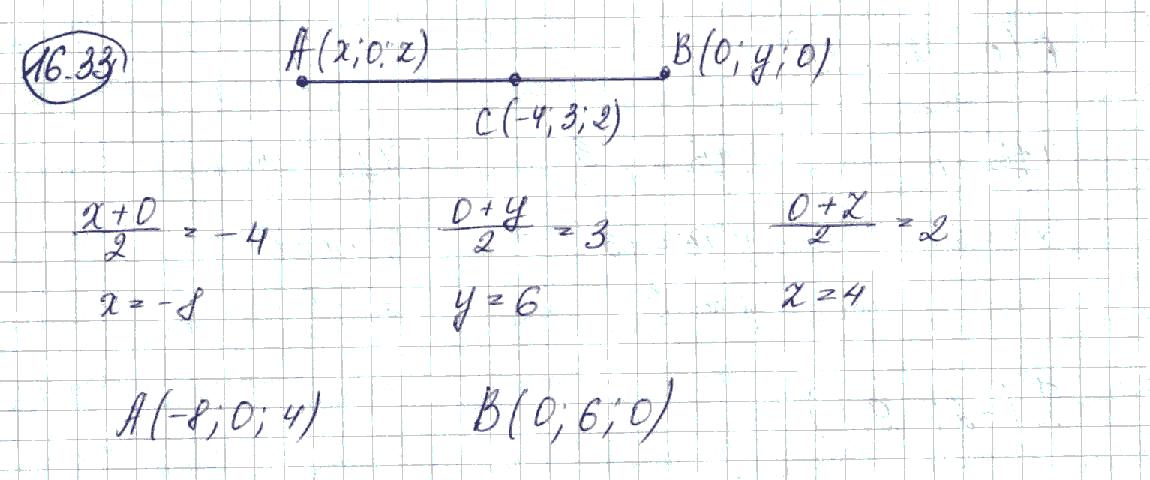 16.33
A(x;0;z) B(0;y;0)
C(-4;3;2)
(x+0)/2 = -4 (0+y)/2 = 3 (0+z)/2 = 2
x = -8 y = 6 z = 4
A(-8;0;4) B(0;6;0)